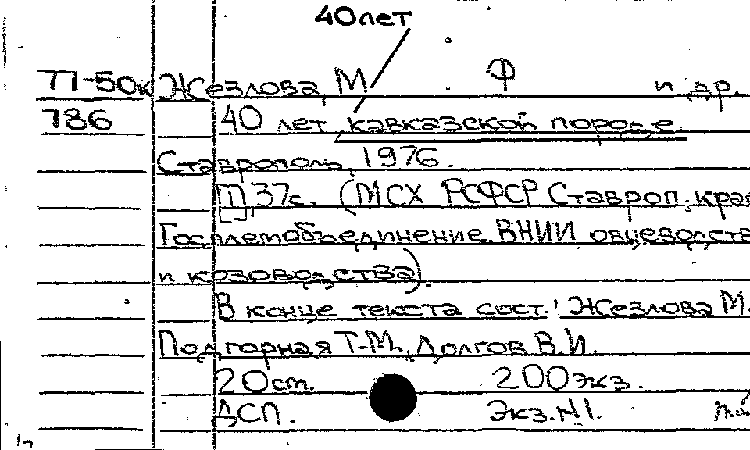 40 лет
77-50к Жезлова, М Ф и др.
786 40 лет кавказской породе.
Ставрополь, 1976.
[П] 37с. (МСХ РСФСР Ставроп. края
Госплемобъединение ВНИИ овцеводства
и козоводства).
В конце текста сост.: Жезлова М.
Подгорная Т.М., Долгов В.И.
20см. 200экз.
ДСП. Экз.N1.